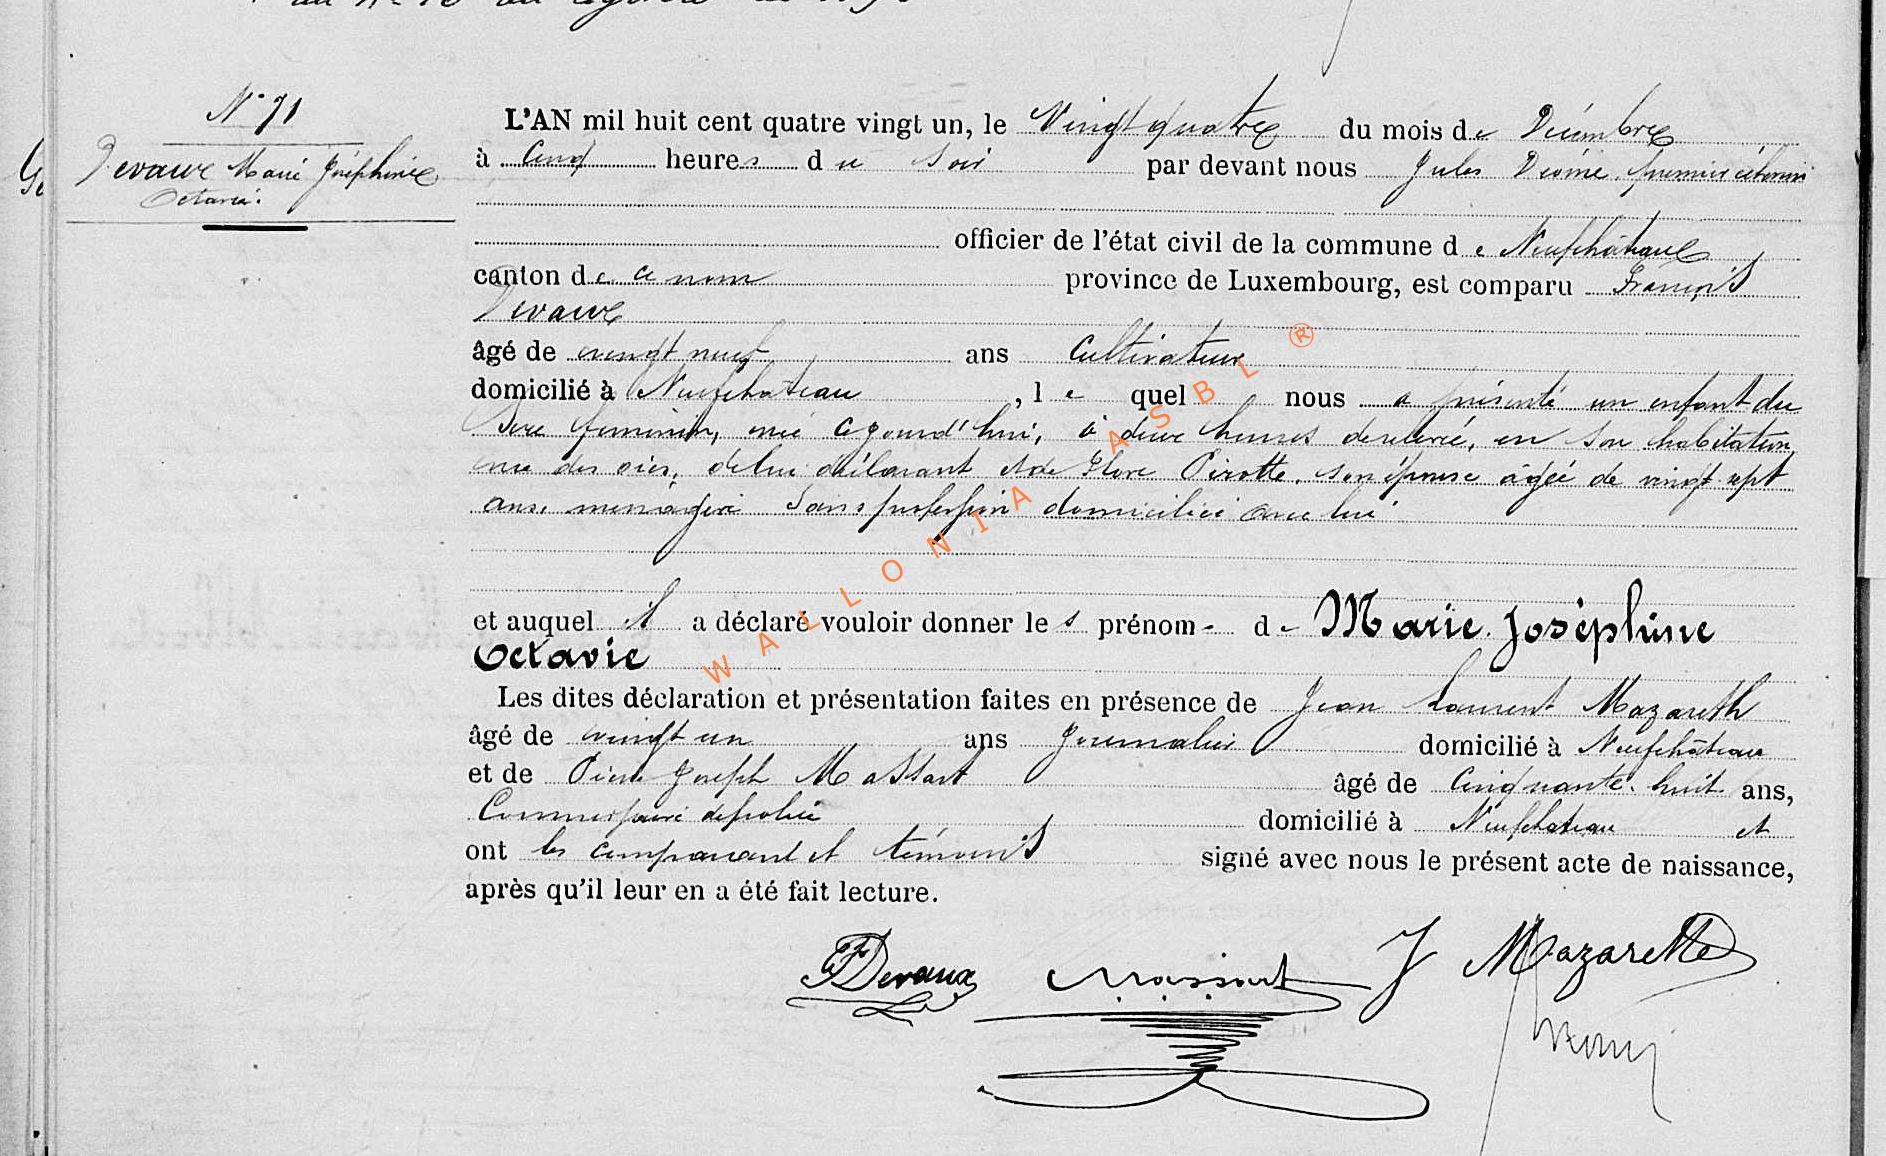 N° 71
Devaux Marie Joséphine
Octavie.
L'AN mil huit cent quatre vingt un, le Vingt quatre du mois de Décembre
à cinq heures du soir par devant nous Jules premier échevin
officier de l'état civil de la commune de Neufchâteau
canton de ce nom province de Luxembourg, est comparu François
Devaux
âgé de vingt neuf ans Cultivateur
domicilié à Neufchateau, le quel nous a présenté un enfant du
Sexe féminin, née aujourd'hui, à deux heures de relevée, en son habitation
rue des oies, de lui déclarant et de Flore Pirotte, son épouse âgée de vingt-sept
ans, ménagère sans profession domiciliée avec lui
et auquel il a déclaré vouloir donner les prénom- de Marie. Joséphine
Octavie
Les dites déclaration et présentation faites en présence de Jean Laurent Mazareth
âgé de vingt un ans journalier domicilié à Neufchâteau
et de Pierre Joseph Massart âgé de Cinquante-huit ans,
Commissaire de police domicilié à Neufchateau et
ont les comparant et témoins signé avec nous le présent acte de naissance,
après qu'il leur en a été fait lecture.
FDevaux Massart J Mazarette
WALLONIA ASBL ®